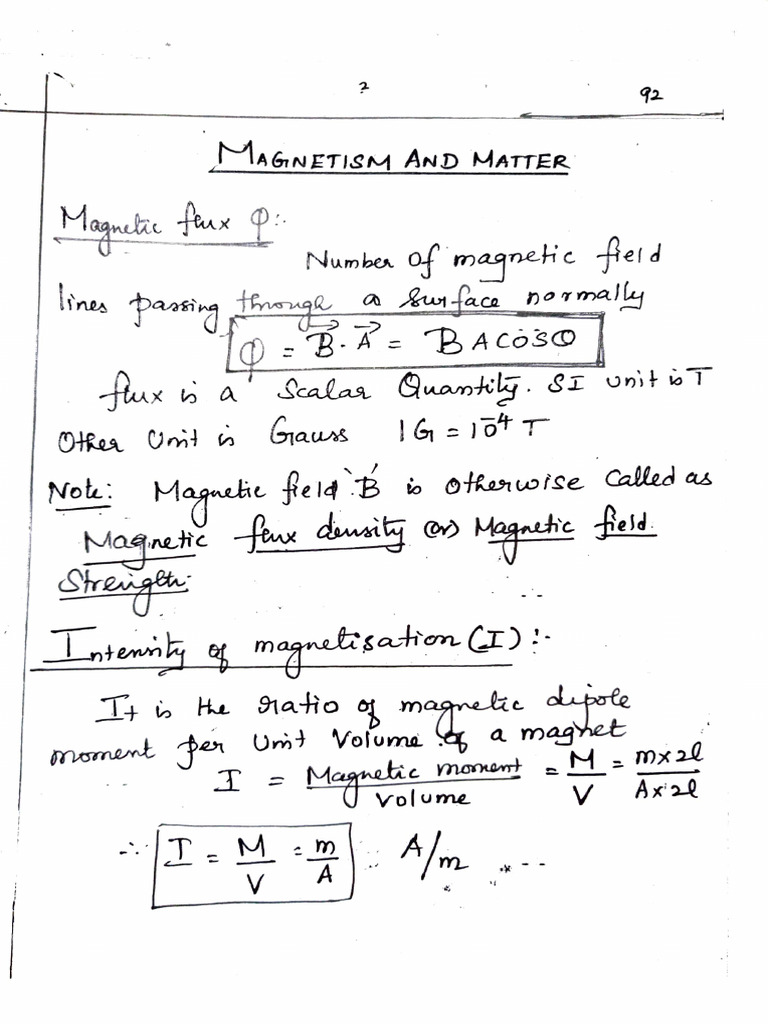 2 92
MAGNETISM AND MATTER
Magnetic flux φ:-
Number of magnetic field
lines passing through a surface normally
φ = B⃗ · A⃗ = BA cosθ
flux is a Scalar Quantity. SI unit is T
Other Unit is Gauss 1G = 10⁻⁴ T
Note: Magnetic field 'B' is otherwise called as
Magnetic flux density (or) Magnetic field
Strength.
Intensity of magnetisation (I) :-
It is the ratio of magnetic dipole
moment per Unit Volume of a magnet
I = Magnetic moment / Volume = M/V = m×2l / A×2l
∴ I = M/V = m/A A/m